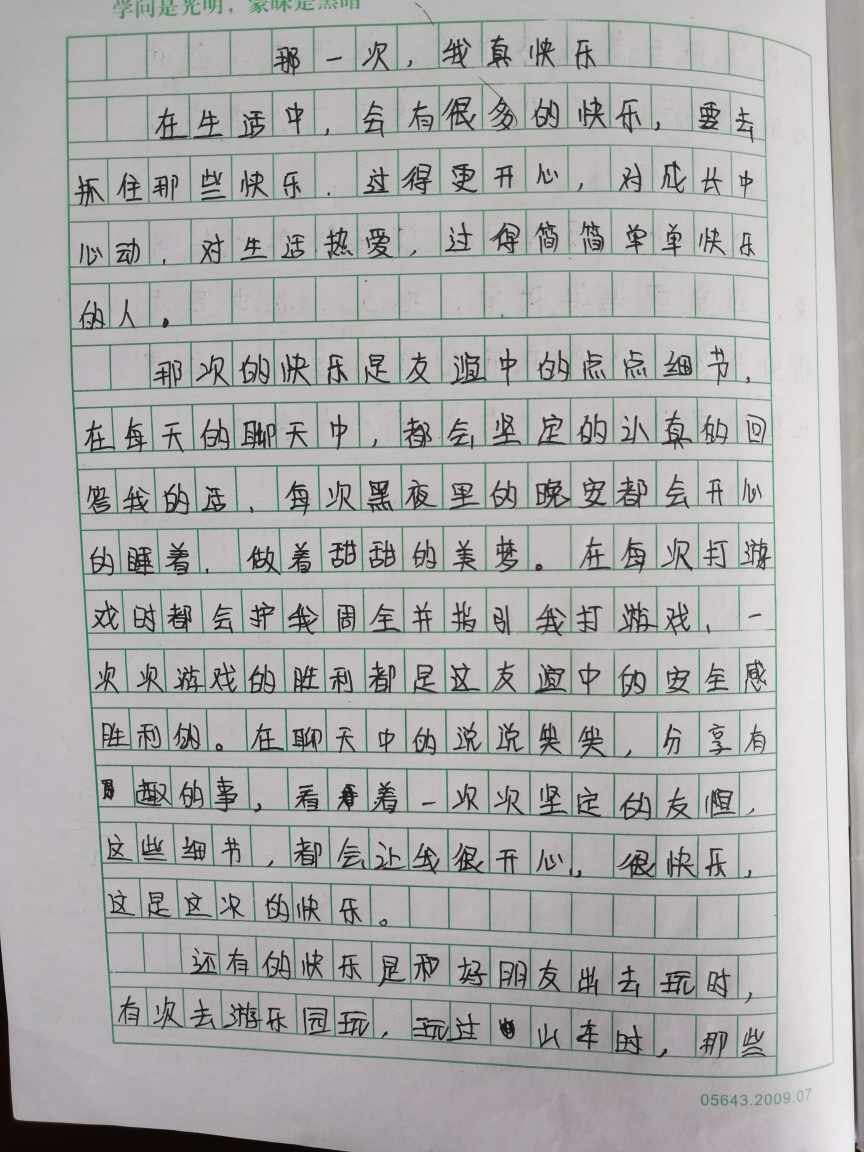 学问是光明，蒙昧是黑暗
那一次，我真快乐
在生活中，会有很多的快乐，要去
抓住那些快乐．过得更开心，对成长中
心动．对生活热爱，过得简简单单快乐
的人。
那次的快乐是友谊中的点点细节，
在每天的聊天中，都会坚定的认真的回
答我的话、每次黑夜里的晚安都会开心
的睡着．做着甜甜的美梦。在每次打游
戏时都会护我周全并指引我打游戏、一
次次游戏的胜利都是这友谊中的安全感
胜利的。在聊天中的说说笑笑，分享有
趣的事，看着一次次坚定的友谊，
这些细节，都会让我很开心，很快乐，
这是这次的快乐。
还有的快乐是和好朋友出去玩时，
有次去游乐园玩，玩过山车时，那些
05643.2009.07